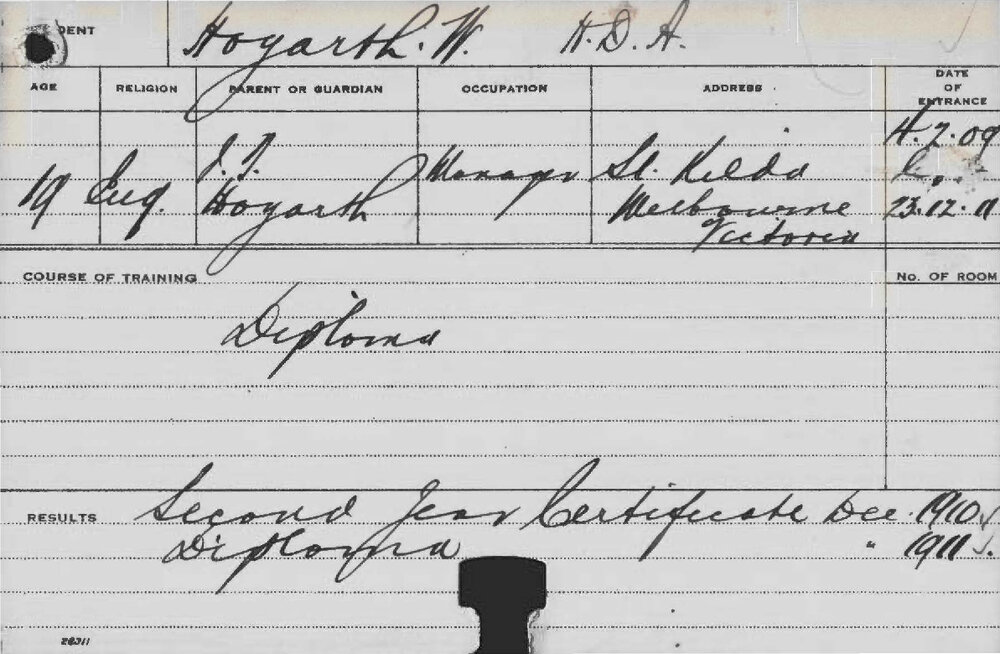 DENT Hogarth. W. H. D. A.
AGE RELIGION PARENT OR GUARDIAN OCCUPATION ADDRESS DATE OF ENTRANCE
19 Eng. J. T. Hogarth Manager St. Kilda Melbourne Victoria 4.2.09
23.12.11
COURSE OF TRAINING No. OF ROOM
Diploma
RESULTS Second Year Certificate Dec. 1910 √
Diploma " 1911 √.
28311